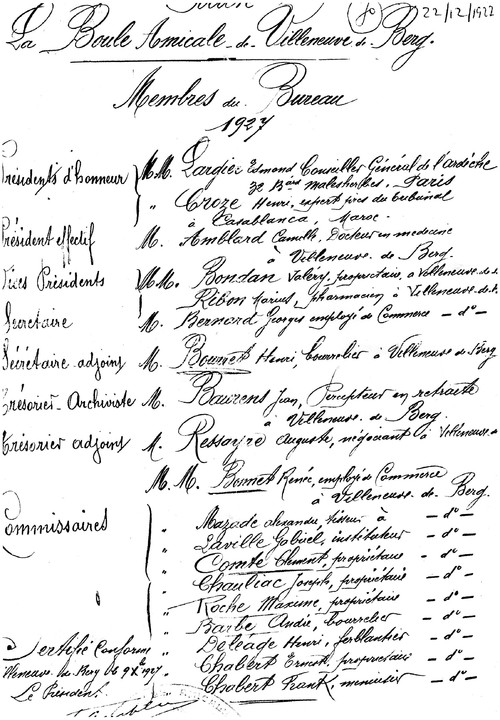 80 22/12/1922
La Boule Amicale de Villeneuve de Berg.
Membres du Bureau
1927
Présidents d'honneur M.M. Largier Edmond Conseiller Général de l'ardèche
32 Bard Malesherbes, Paris
" Croze Henri, expert près du tribunal
à Casablanca, Maroc
Président effectif M. Amblard Camille, Docteur en médecine
à Villeneuve de Berg.
Vices Présidents M.M. Bondan Valéry, propriétaire, à Villeneuve de
Ribon Marius, pharmacien à Villeneuve de
Secrétaire M. Bernard Georges employé de Commerce - do -
Secrétaire adjoint M. Bonnet Henri, bourrelier à Villeneuve de Berg
Trésorier-Archiviste M. Baurens Jean, Percepteur en retraite
à Villeneuve de Berg.
Trésorier adjoint M. Ressayre Auguste, négociant à Villeneuve de
M.M. Bonnet Renée, employé de Commerce
à Villeneuve de Berg.
Commissaires " Mazade alexandre, tisseur à - do -
" Laville Gabriel, instituteur - do -
" Comte Clément, propriétaire - do -
" Chauliac Joseph, propriétaire - do -
" Roche Maxime, propriétaire - do -
" Barbe André, bourrelier - do -
Certifié Conforme " Deléage Henri, ferblantier - do -
Villeneuve de Berg le 9 Xbre 1927 " Chabert Ernest, propriétaire - do -
Le Président " Chabert Frank, menuisier - do -